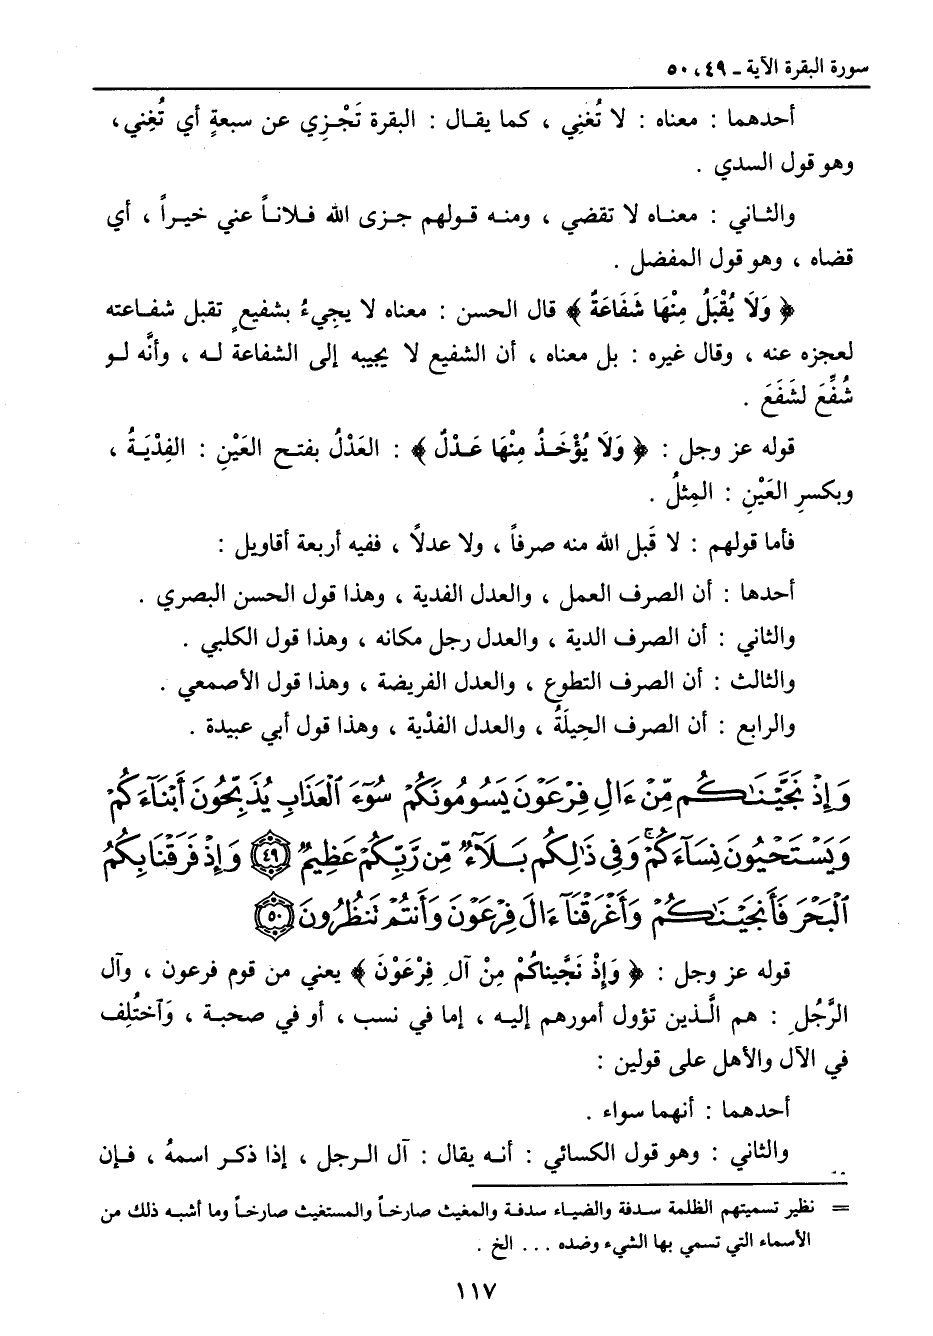 سورة البقرة الآية ـ ٤٩، ٥٠
أحدهما : معناه : لا تُغنِي ، كما يقال : البقرة تَجْزِي عن سبعةٍ أي تُغِني،
وهو قول السدي .
والثاني : معناه لا تقضي ، ومنه قولهم جزى الله فلاناً عني خيراً ، أي
قضاه ، وهو قول المفضل .
﴿ وَلَا يُقْبَلُ مِنْهَا شَفَاعَةٌ ﴾ قال الحسن : معناه لا يجِيءُ بشفيعٍ تقبل شفاعته
لعجزه عنه ، وقال غيره : بل معناه ، أن الشفيع لا يجيبه إلى الشفاعة له ، وأنَّه لو
شُفِّعَ لشَفَعَ .
قوله عز وجل : ﴿ وَلَا يُؤْخَذُ مِنْهَا عَدْلٌ ﴾ : العَدْلُ بفتح العَيْنِ : الفِدْيَةُ ،
وبكسرِ العَيْنِ : المِثلُ .
فأما قولهم : لا قَبل الله منه صرفاً ، ولا عدلاً ، ففيه أربعة أقاويل :
أحدها : أن الصرف العمل ، والعدل الفدية ، وهذا قول الحسن البصري .
والثاني : أن الصرف الدية ، والعدل رجل مكانه ، وهذا قول الكلبي .
والثالث : أن الصرف التطوع ، والعدل الفريضة ، وهذا قول الأصمعي .
والرابع : أن الصرف الحِيلَةُ ، والعدل الفدْية ، وهذا قول أبي عبيدة .
وَإِذْ نَجَّيْنَاكُم مِّنْ ءَالِ فِرْعَوْنَ يَسُومُونَكُمْ سُوٓءَ الْعَذَابِ يُذَبِّحُونَ أَبْنَآءَكُمْ
وَيَسْتَحْيُونَ نِسَآءَكُمْ ۚ وَفِي ذَٰلِكُم بَلَآءٌ مِّن رَّبِّكُمْ عَظِيمٌ ﴿٤٩﴾ وَإِذْ فَرَقْنَا بِكُمُ
الْبَحْرَ فَأَنجَيْنَاكُمْ وَأَغْرَقْنَآ ءَالَ فِرْعَوْنَ وَأَنتُمْ تَنظُرُونَ ﴿٥٠﴾
قوله عز وجل : ﴿ وَإِذْ نَجَّيناكُمْ مِنْ آلِ فِرْعَوْنَ ﴾ يعني من قوم فرعون ، وآل
الرَّجُلِ : هم الَّذين تؤول أمورهم إليه ، إما في نسب ، أو في صحبة ، وَاختُلِف
في الآل والأهل على قولين :
أحدهما : أنهما سواء .
والثاني : وهو قول الكسائي : أنه يقال : آل الرجل ، إذا ذكر اسمهُ ، فإن
= نظير تسميتهم الظلمة سدفة والضياء سدفة والمغيث صارخاً والمستغيث صارخاً وما أشبه ذلك من
الأسماء التي تسمي بها الشيء وضده ... الخ .
١١٧